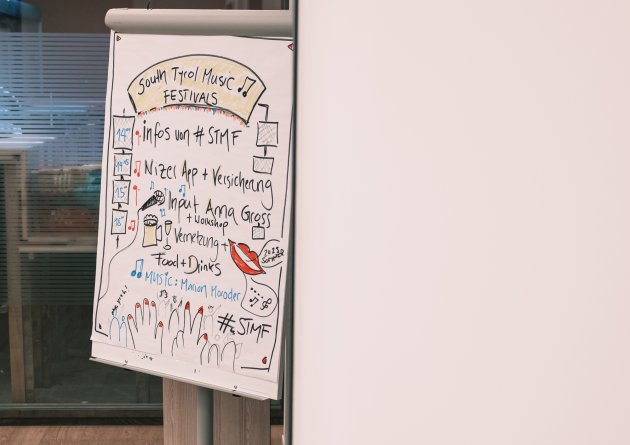 South Tyrol Music
FESTIVALS
14⁰⁰ infos von #STMF
14¹⁵ Nizer App + Versicherung
15⁰⁰ Input Anna Gross
+ Workshop
Vernetzung +
Food + Drinks
MUSIC: Marion Moroder
SOMMER
#STMF